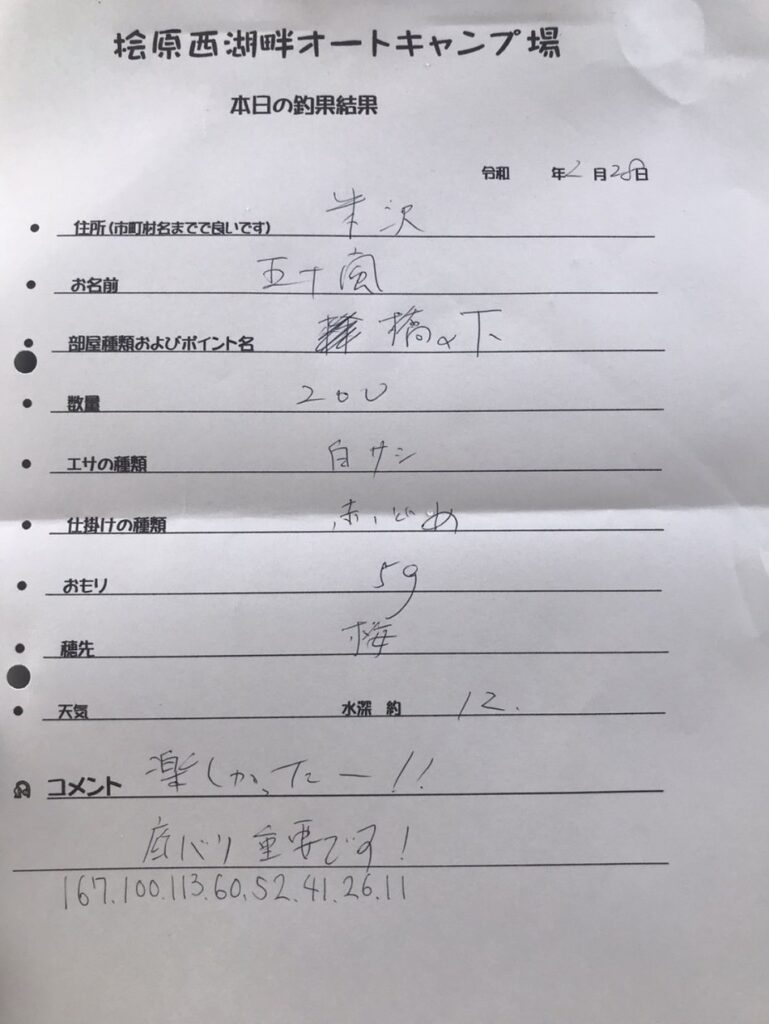 桧原西湖畔オートキャンプ場
本日の釣果結果
令和 年2月28日
住所(市町村名まで良いです) 米沢
お名前 五十嵐
部屋種類およびポイント名 橋の下
数量 200
エサの種類 白サシ
仕掛けの種類 赤いどめ
おもり 5g
穂先 梅
天気 水深 約 12.
コメント 楽しかったー!!
底バリ重要です!
167.100.113.60.52.41.26.11